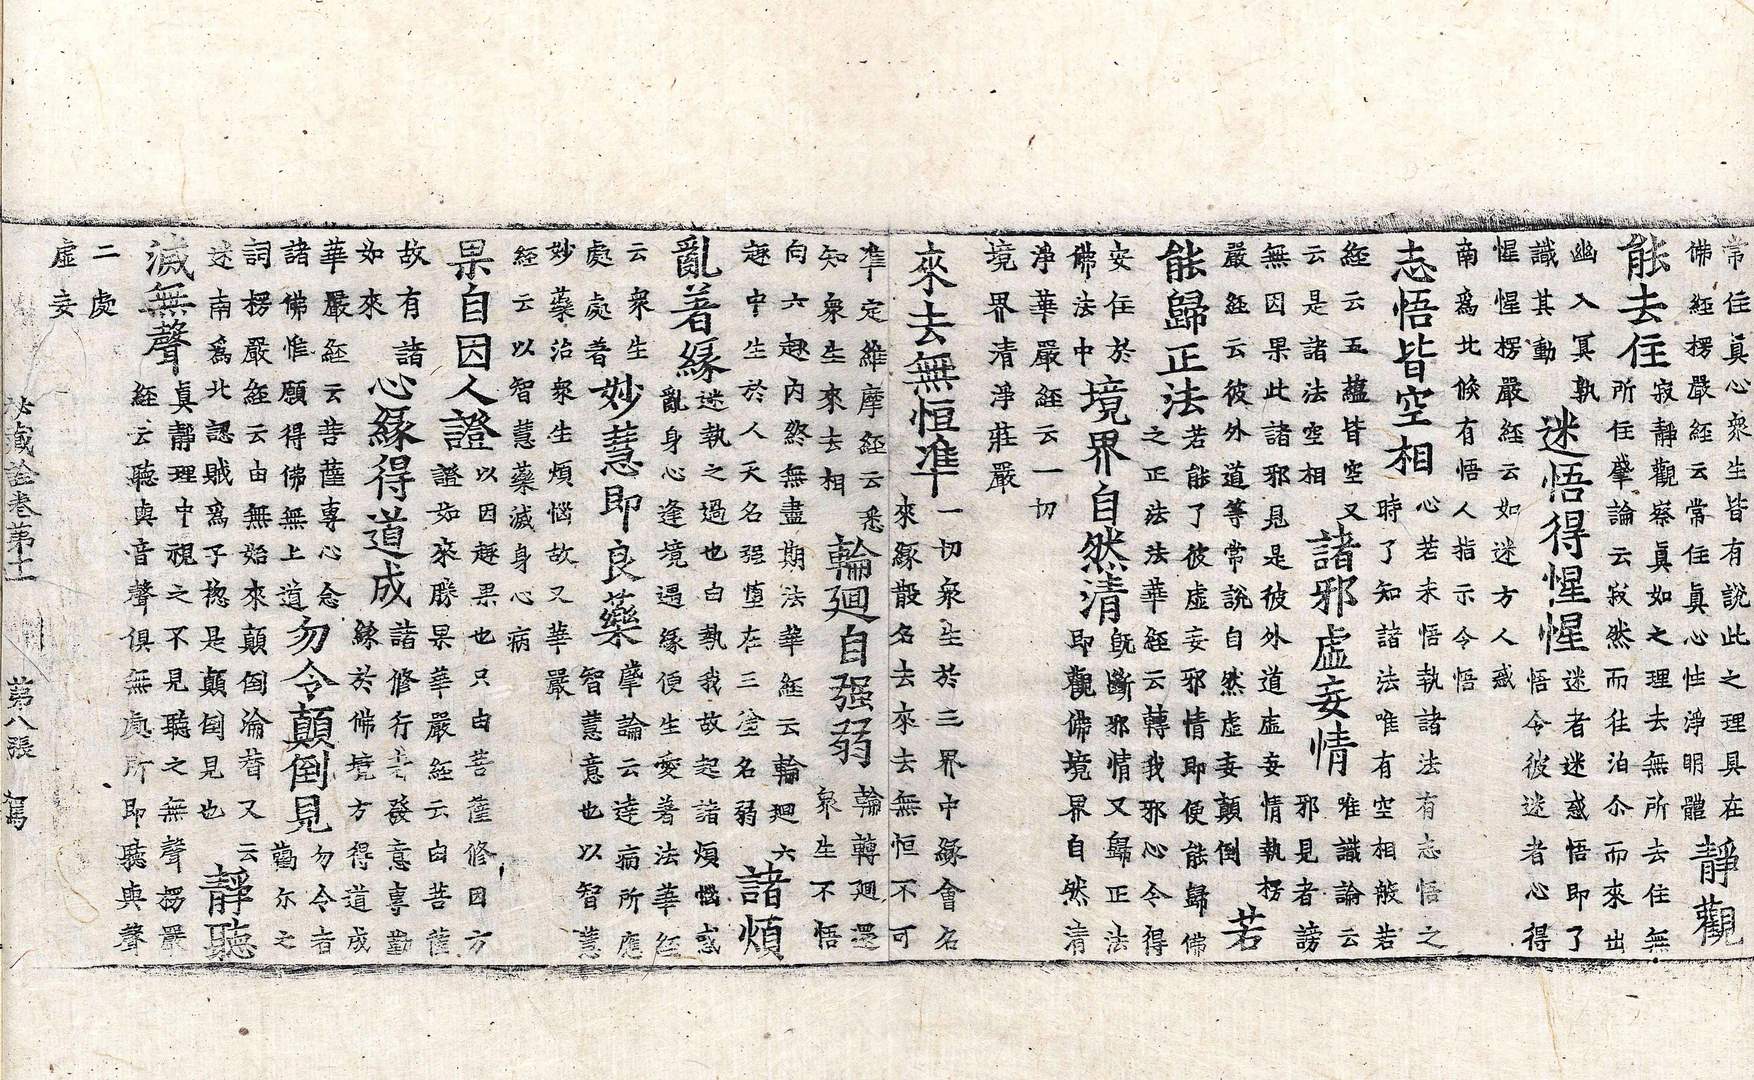 常住真心衆生皆有說此之理具在
佛經楞嚴經云常住真心性淨明體
靜觀
能去住
寂靜觀察真如之理去無所去住無
所住肇論云寂然而往泊尒而來出
幽入冥孰
識其動
迷悟得惺惺
迷者迷惑悟即了
悟令彼迷者心得
惺惺楞嚴經云如迷方人惑
南爲北倏有悟人指示令悟
志悟皆空相
心若未悟執諸法有志悟之
時了知諸法唯有空相般若
經云五蘊皆空又
云是諸法空相
諸邪虛妄情
唯識論云
邪見者謗
無因果此諸邪見是彼外道虛妄情執楞
嚴經云彼外道等常說自然虛妄顛倒
若
能歸正法
若能了彼虛妄邪情即便能歸佛
之正法法華經云轉我邪心令得
安住於
佛法中
境界自然清
旣斷邪情又歸正法
即觀佛境界自然清
淨華嚴經云一切
境界清淨莊嚴
來去無恒准
一切衆生於三界中緣會名
來緣散名去來去無恒不可
准定維摩經云悉
知衆生來去相
輪廻自强弱
輪轉廻還
衆生不悟
向六趣内終無盡期法華經云輪廻六
趣中生於人天名强墮在三塗名弱
諸煩
亂著緣
迷執之過也白執我故起諸煩惱惑
亂身心逢境遇緣便生愛著法華經
云衆生
處處著
妙慧即良藥
肇論云達病所應
智慧意也以智慧
妙藥治衆生煩惱故又華嚴
經云以智慧藥滅身心病
果自因人證
以因趣果也只由菩薩修因方
證如來勝果華嚴經云由菩薩
故有諸
如來
心緣得道成
諸修行者發意專勤
緣於佛境方得道成
華嚴經云菩薩專心念
諸佛惟願得佛無上道
勿令顛倒見
勿令者
勸尒之
詞楞嚴經云由無始來顛倒淪替又云
迷南爲北認賊爲子惣是顛倒見也
靜聽
滅無聲
真靜理中視之不見聽之無聲楞嚴
經云聽與音聲俱無處所即聽與聲
二處
虛妄
秘藏詮卷第十一 第八張 駕